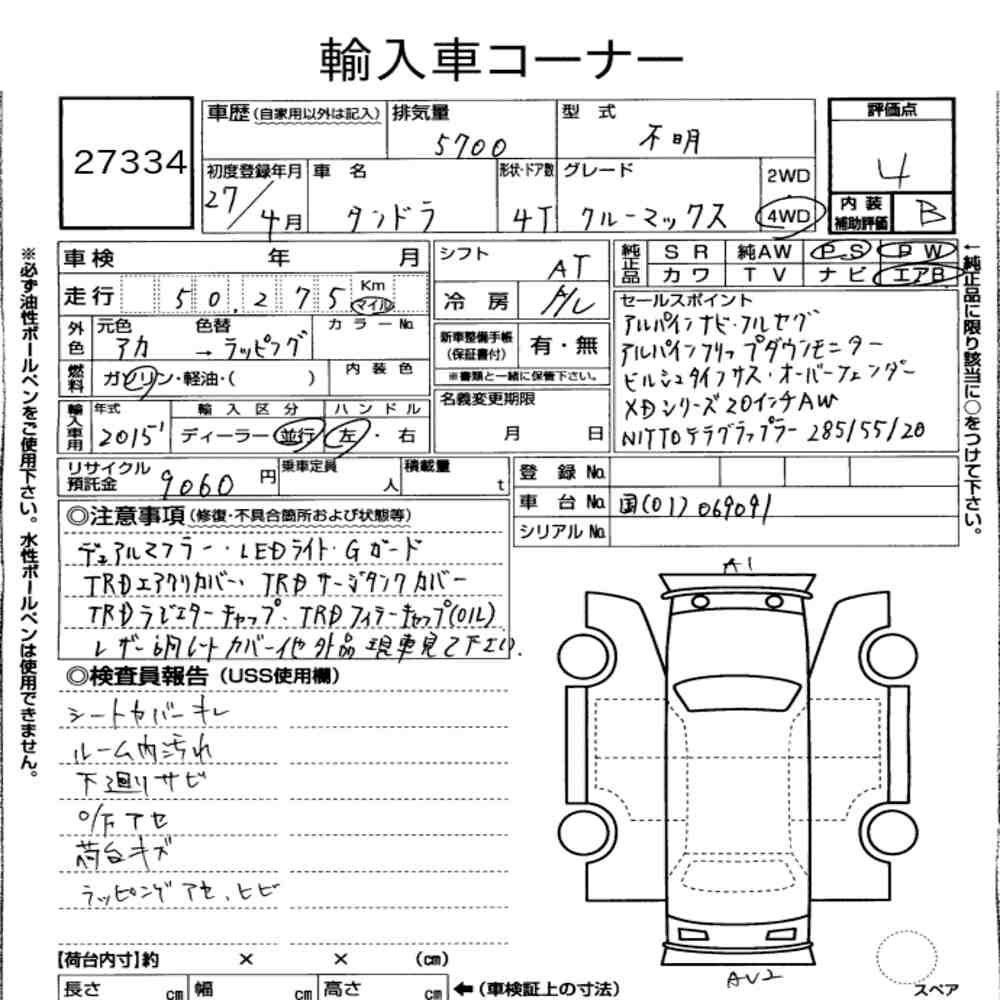 輸入車コーナー
27334
車歴(自家用以外は記入) 排気量 5700 型式 不明
評価点 4
初度登録年月 27/4月 車名 タンドラ 形状・ドア数 4T グレード クルーマックス 2WD 4WD
内装補助評価 B
車検 年 月
走行 50,275 Km マイル
外色 元色 アカ 色替 → ラッピング カラーNo.
燃料 ガソリン・軽油・( ) 内装色
輸入車用 年式 2015' 輸入区分 ディーラー 並行 ハンドル 左・右
シフト AT
冷房 A/C
新車整備手帳(保証書付) 有・無
※書類と一緒に保管下さい。
名義変更期限
月 日
純正品 SR 純AW PS PW
カワ TV ナビ エアB
セールスポイント
アルパインナビ・フルセグ
アルパインフリップダウンモニター
ビルシュタインサス・オーバーフェンダー
XDシリーズ20インチAW
NITTOテラグラップラー 285/55/20
リサイクル預託金 9060円 乗車定員 人 積載量 t
登録No.
車台No. 国(01)069091
シリアルNo.
◎注意事項(修復・不具合箇所および状態等)
デュアルマフラー・LEDライト・Gガード
TRDエアクリカバー・TRDサージタンクカバー
TRDラジエターキャップ・TRDフィラーキャップ(OIL)
レザー調シートカバー他 外品 現車見て下さい.
◎検査員報告(USS使用欄)
シートカバーキレ
ルーム内汚れ
下廻リサビ
O/Fアセ
荷台キズ
ラッピングアセ、ヒビ
A1
AU2
スペア
【荷台内寸】約 × × (cm)
長さ cm 幅 cm 高さ cm ←(車検証上の寸法)
※必ず油性ボールペンをご使用下さい。水性ボールペンは使用できません。
←純正品に限り該当に○をつけて下さい。